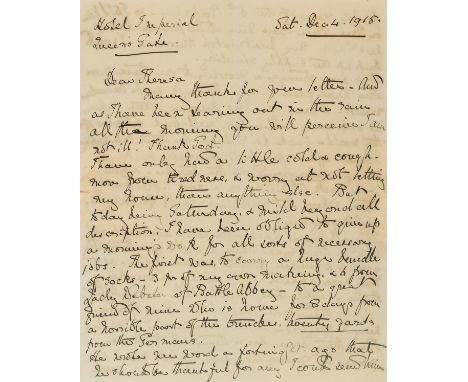 Hotel Imperial Sat. Dec 4. 1915.
Queens Gate.
Dear Theresa
Many thanks for your letter – And
as I have been tearing out in the rain
all the morning you will perceive I am
not ill! Thank God
I have only had a little cold & cough –
more from tiredness, & worry at not letting
my house, than anything else. But
today being Saturday, & mild beyond all
description, I have been obliged to give up
a morning's work for all sorts of necessary
jobs. The first was, to carry a huge bundle
of socks – 3 prs of my own making, & 6 from
Lady Webster of Battle Abbey – to a great
friend of mine who is home for 8 days from
a horrible part of the trenches, twenty yards
from the Germans.
He wrote me word a fortnight ago that
he should be thankful for any I could send him